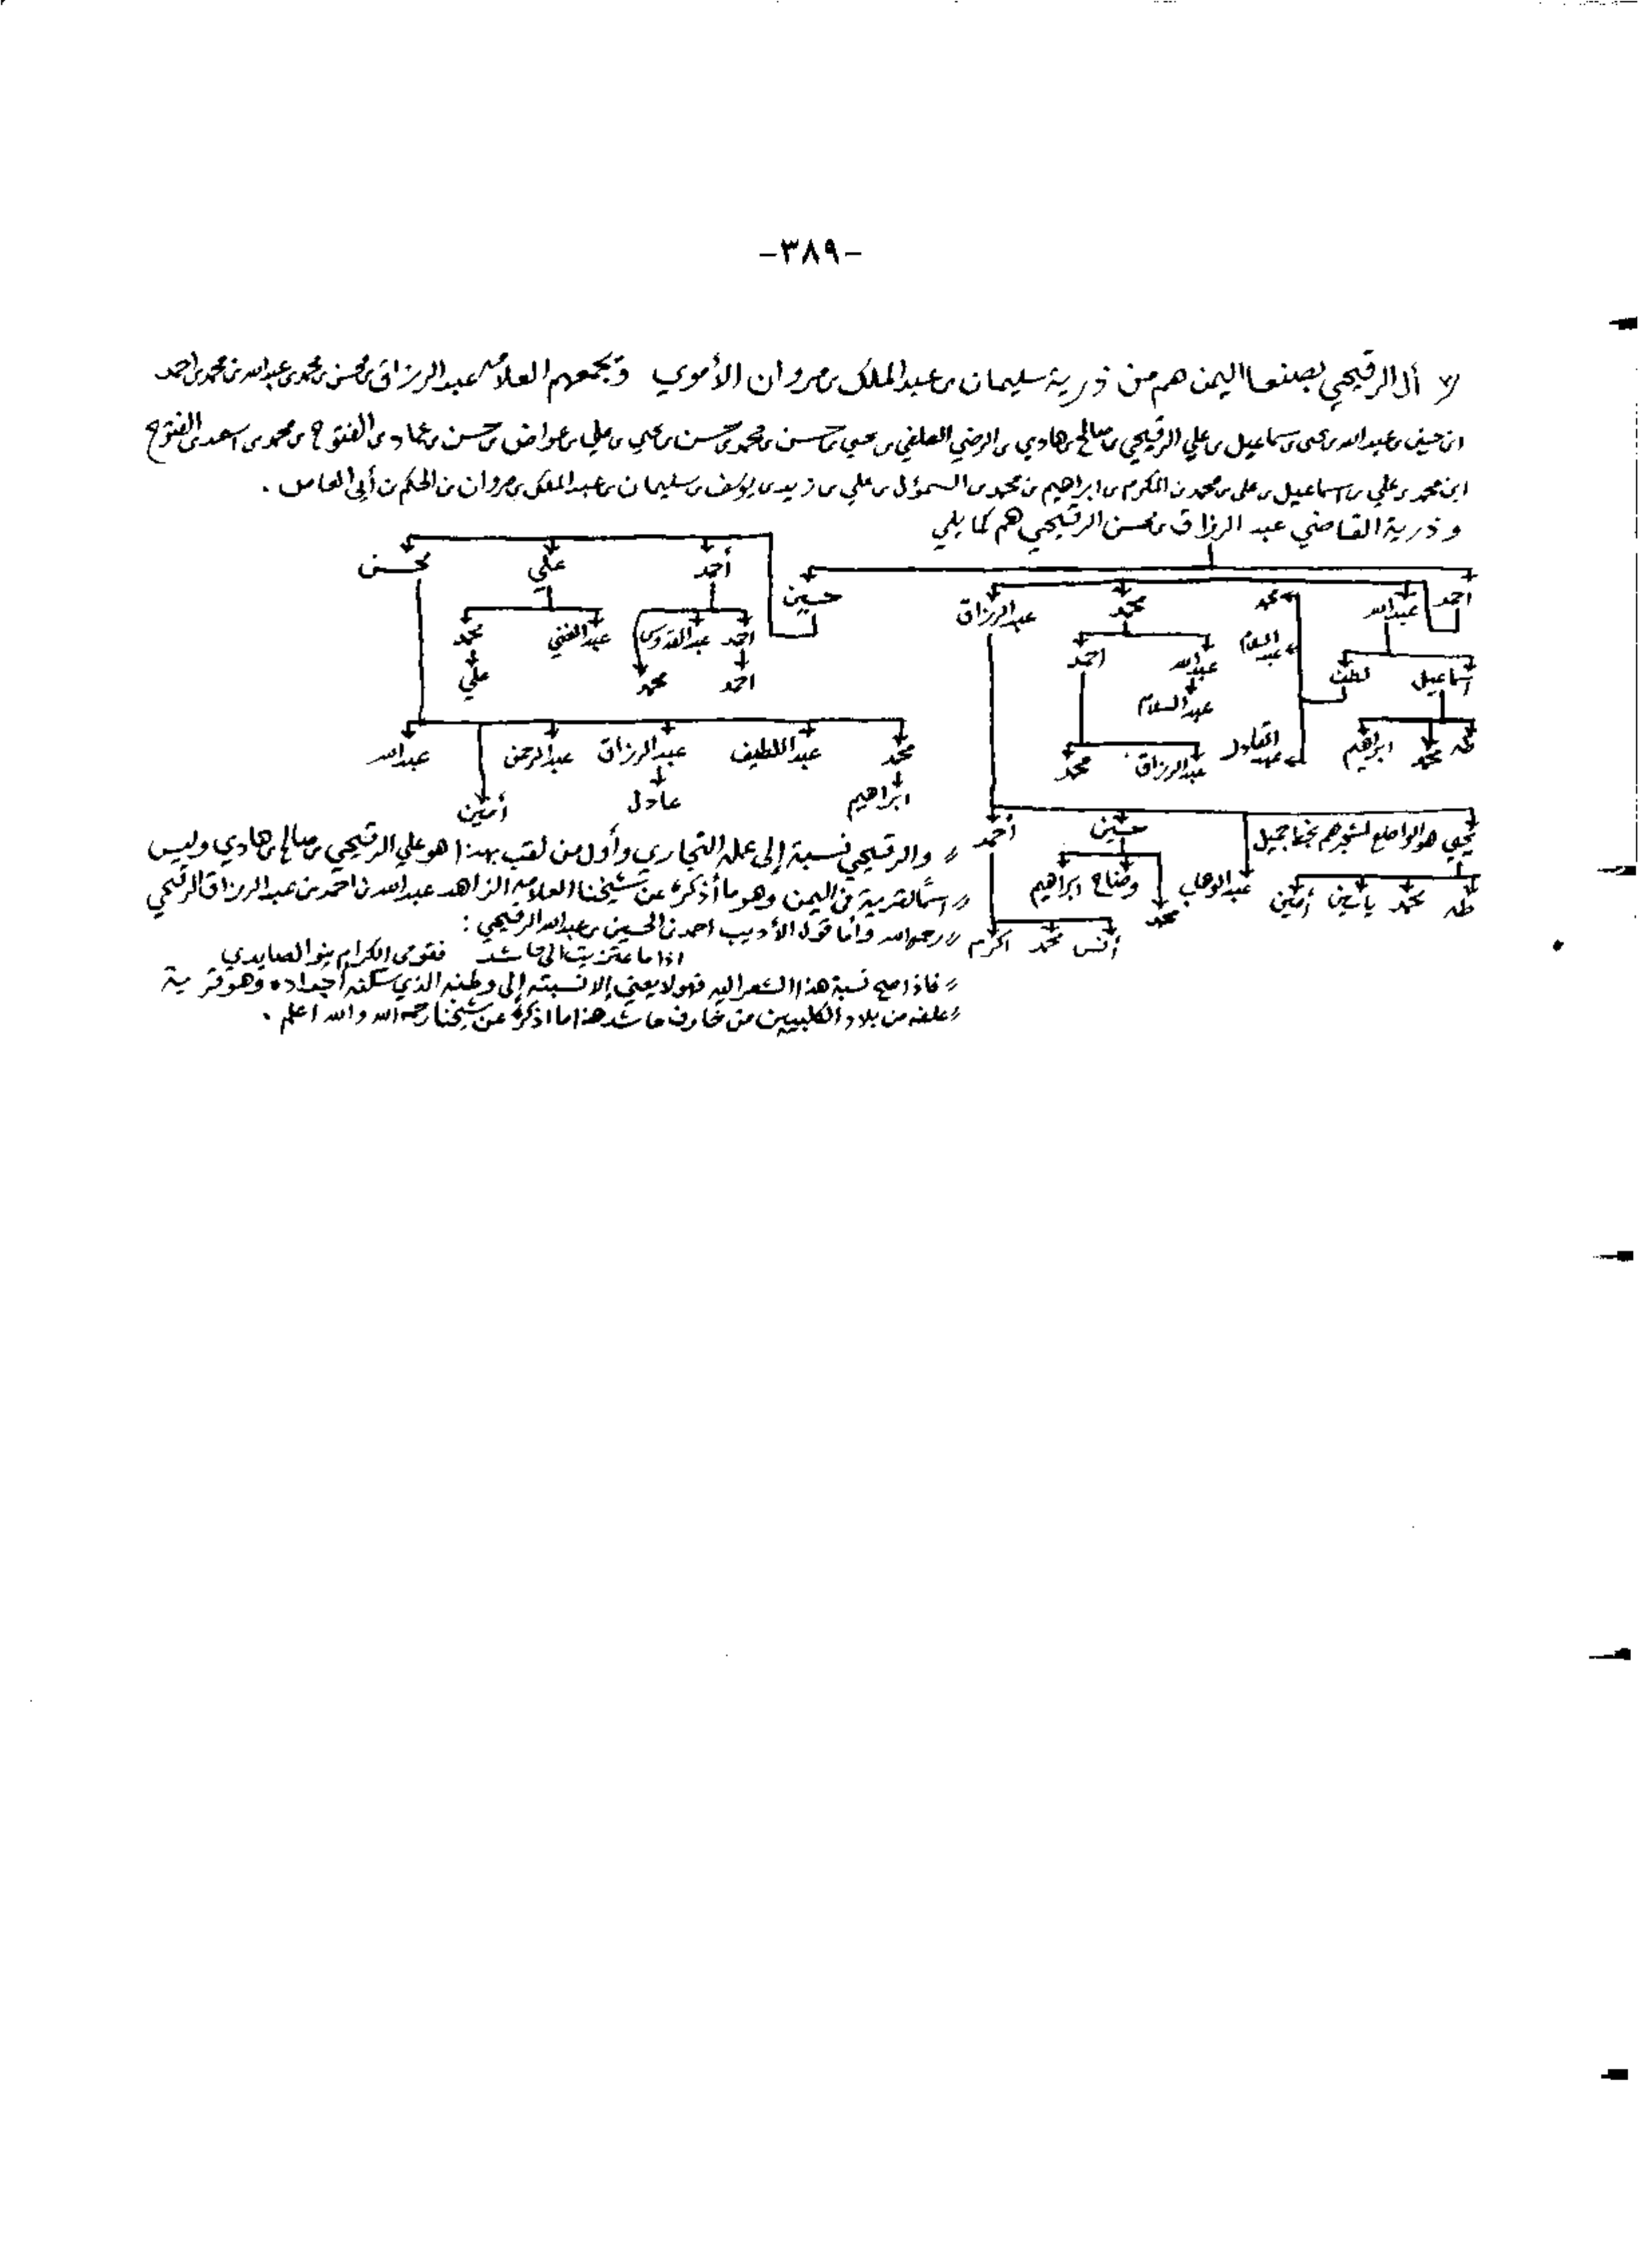 -٣٨٩-
آل الرقيحي بصنعا اليمن هم من ذرية سليمان بن عبد الملك بن مروان الأموي ويجمعهم العلامه عبد الرزاق بن محسن بن محمد بن عبدالله بن محمد بن احمد
ابن حسين بن عبدالله بن يحيى بن اسماعيل بن علي الرقيحي بن صالح بن هادي بن الرضي العلفي بن يحيى بن حسن بن محمد بن حسن بن يحيى بن علي بن عواض بن حسن بن عماد بن الفتوح بن محمد بن اسعد بن الفتوح
ابن محمد بن علي بن اسماعيل بن علي بن محمد بن المكرم بن ابراهيم بن محمد بن السموؤل بن علي بن زيد بن يوسف بن سليمان بن عبد الملك بن مروان بن الحكم بن أبي العاص .
و ذرية القاضي عبد الرزاق بن محسن الرقيحي هم كما يلي
احمد حسين
عبدالله محمد عبدالرزاق
أحمد علي محسن
اسماعيل لطف
محمد عبدالسلام عبدالقادر
عبدالله احمد
عبدالسلام
احمد عبدالقدوس محمد
احمد
عبدالغني محمد
علي
طه محمد ابراهيم
عبدالرزاق محمد
محمد عبداللطيف عبدالرزاق عبدالرحمن أمين عبدالله
ابراهيم عادل
يحيى هو الواضع لمشجرهم بخط جميل عبدالوهاب حسين أحمد
طه محمد ياسين أمين
محمد وضاح ابراهيم
أنس محمد اكرم
〃 والرقيحي نسبة إلى عمله التجاري وأول من لقب بهذا هو علي الرقيحي بن صالح بن هادي وليس
〃 اسماً لقرية في اليمن وهو ما أذكره عن شيخنا العلامه الزاهد عبدالله بن احمد بن عبد الرزاق الرقيحي
〃 رحمه الله وأما قول الأديب احمد بن الحسين بن عبدالله الرقيحي :
اذا ما عتزيت الى حاشد فقومي الكرام بنو الصايدي
〃 فاذا صح نسبة هذا الشعر اليه فهو لا يعني إلا نسبته إلى وطنه الذي سكنه أجداده وهو قرية
〃 علفه من بلاد الكلبيين من خارف حاشد هذا ما اذكره عن شيخنا رحمه الله والله اعلم .